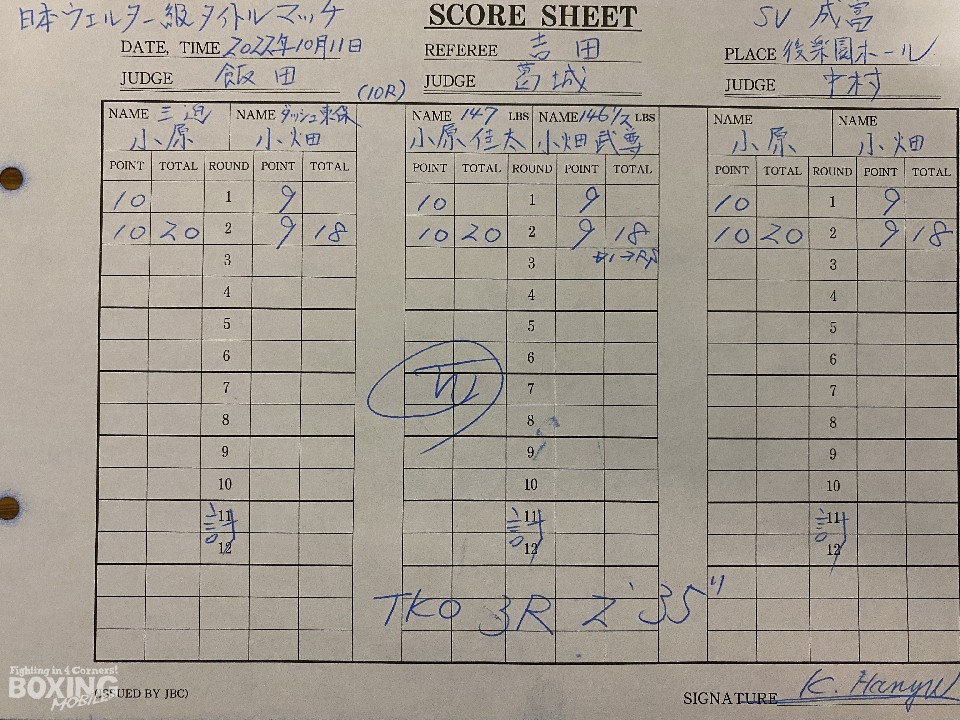 日本ウェルター級タイトルマッチ SCORE SHEET SV 成富
DATE, TIME 2022年10月11日 REFEREE 吉田 PLACE 後楽園ホール
JUDGE 飯田 (10R) JUDGE 葛城 JUDGE 中村
NAME 三迫 NAME ダッシュ東保 NAME 147 LBS NAME 146 1/2 LBS NAME NAME
小原 小畑 小原佳太 小畑武尊 小原 小畑
POINT TOTAL ROUND POINT TOTAL POINT TOTAL ROUND POINT TOTAL POINT TOTAL ROUND POINT TOTAL
10 1 9 10 1 9 10 1 9
10 20 2 9 18 10 20 2 9 18 10 20 2 9 18
3 3 3
4 4 4
5 5 5
6 6 6
7 W 7 7
8 8 8
9 9 9
10 10 10
計 11 計 11 計 11
12 12 12
TKO 3R 2'35"
Fighting in 4 Corners!
BOXING
MOBILE
(ISSUED BY JBC) SIGNATURE